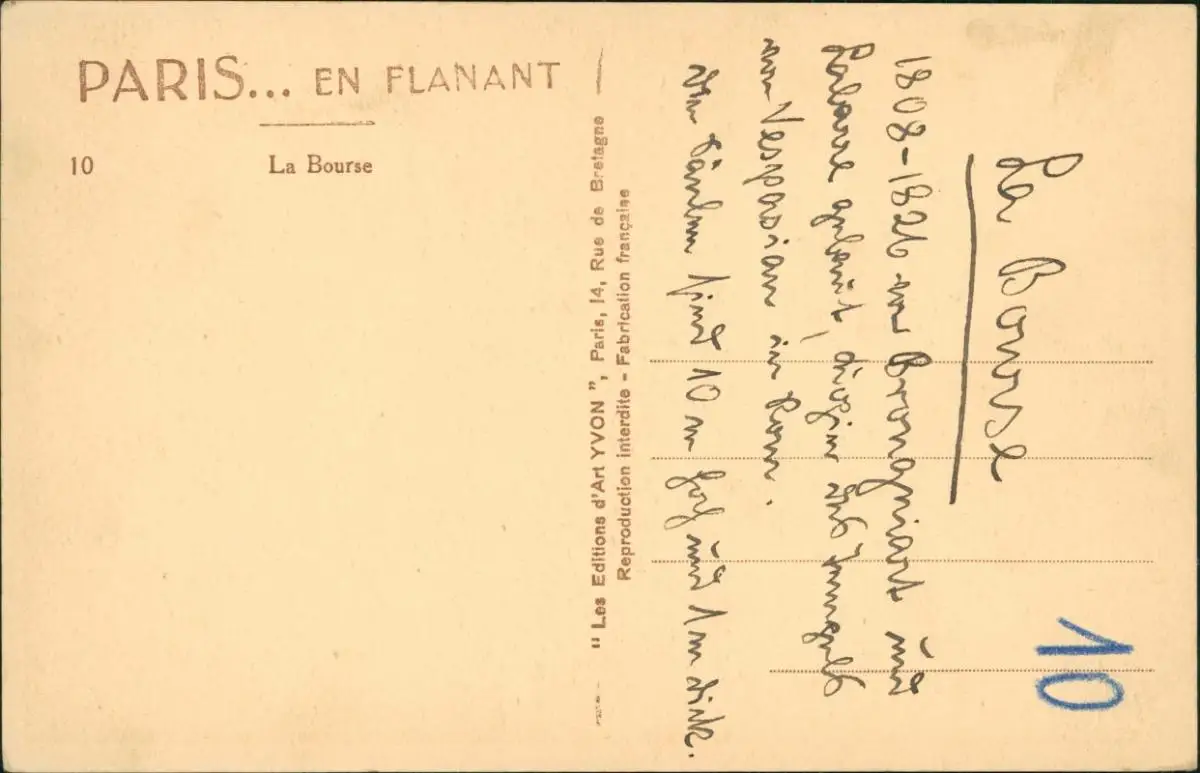 PARIS... EN FLANANT
10 La Bourse
"Les Editions d'Art YVON", Paris, 14, Rue de Bretagne
Reproduction interdite - Fabrication française
La Bourse
1808-1826 von Brongniart und
Labarre gebaut, des Tempels
von Vespasian in Rom.
Die Säulen sind 10 m hoch und 1 m dick.
10